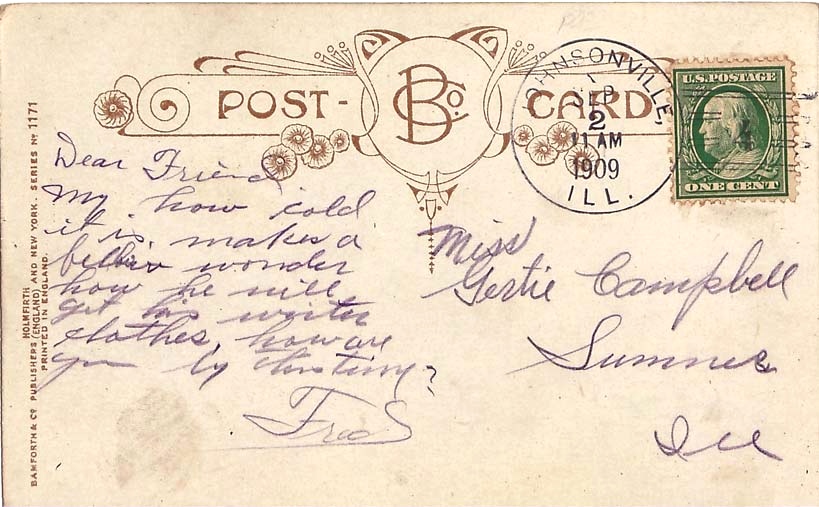 POST-CARD
B Co.
JOHNSONVILLE,
1
SEP
2
11 AM
1909
ILL.
U.S. POSTAGE
ONE CENT
4
Dear Friend
My how cold
it is, makes a
wonder
how he will
get his winter
clothes, how are
you by this time?
Fred
Miss
Gertie Campbell
Sumner
Ill
BAMFORTH & Co. PUBLISHERS (ENGLAND) AND NEW YORK. SERIES No 1171
HOLMFIRTH
PRINTED IN ENGLAND.